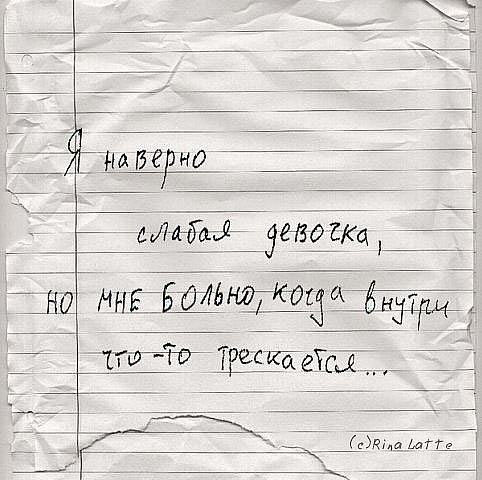 Я наверно
слабая девочка,
но мне больно, когда внутри
что-то трескается...
(c)Rina Latte